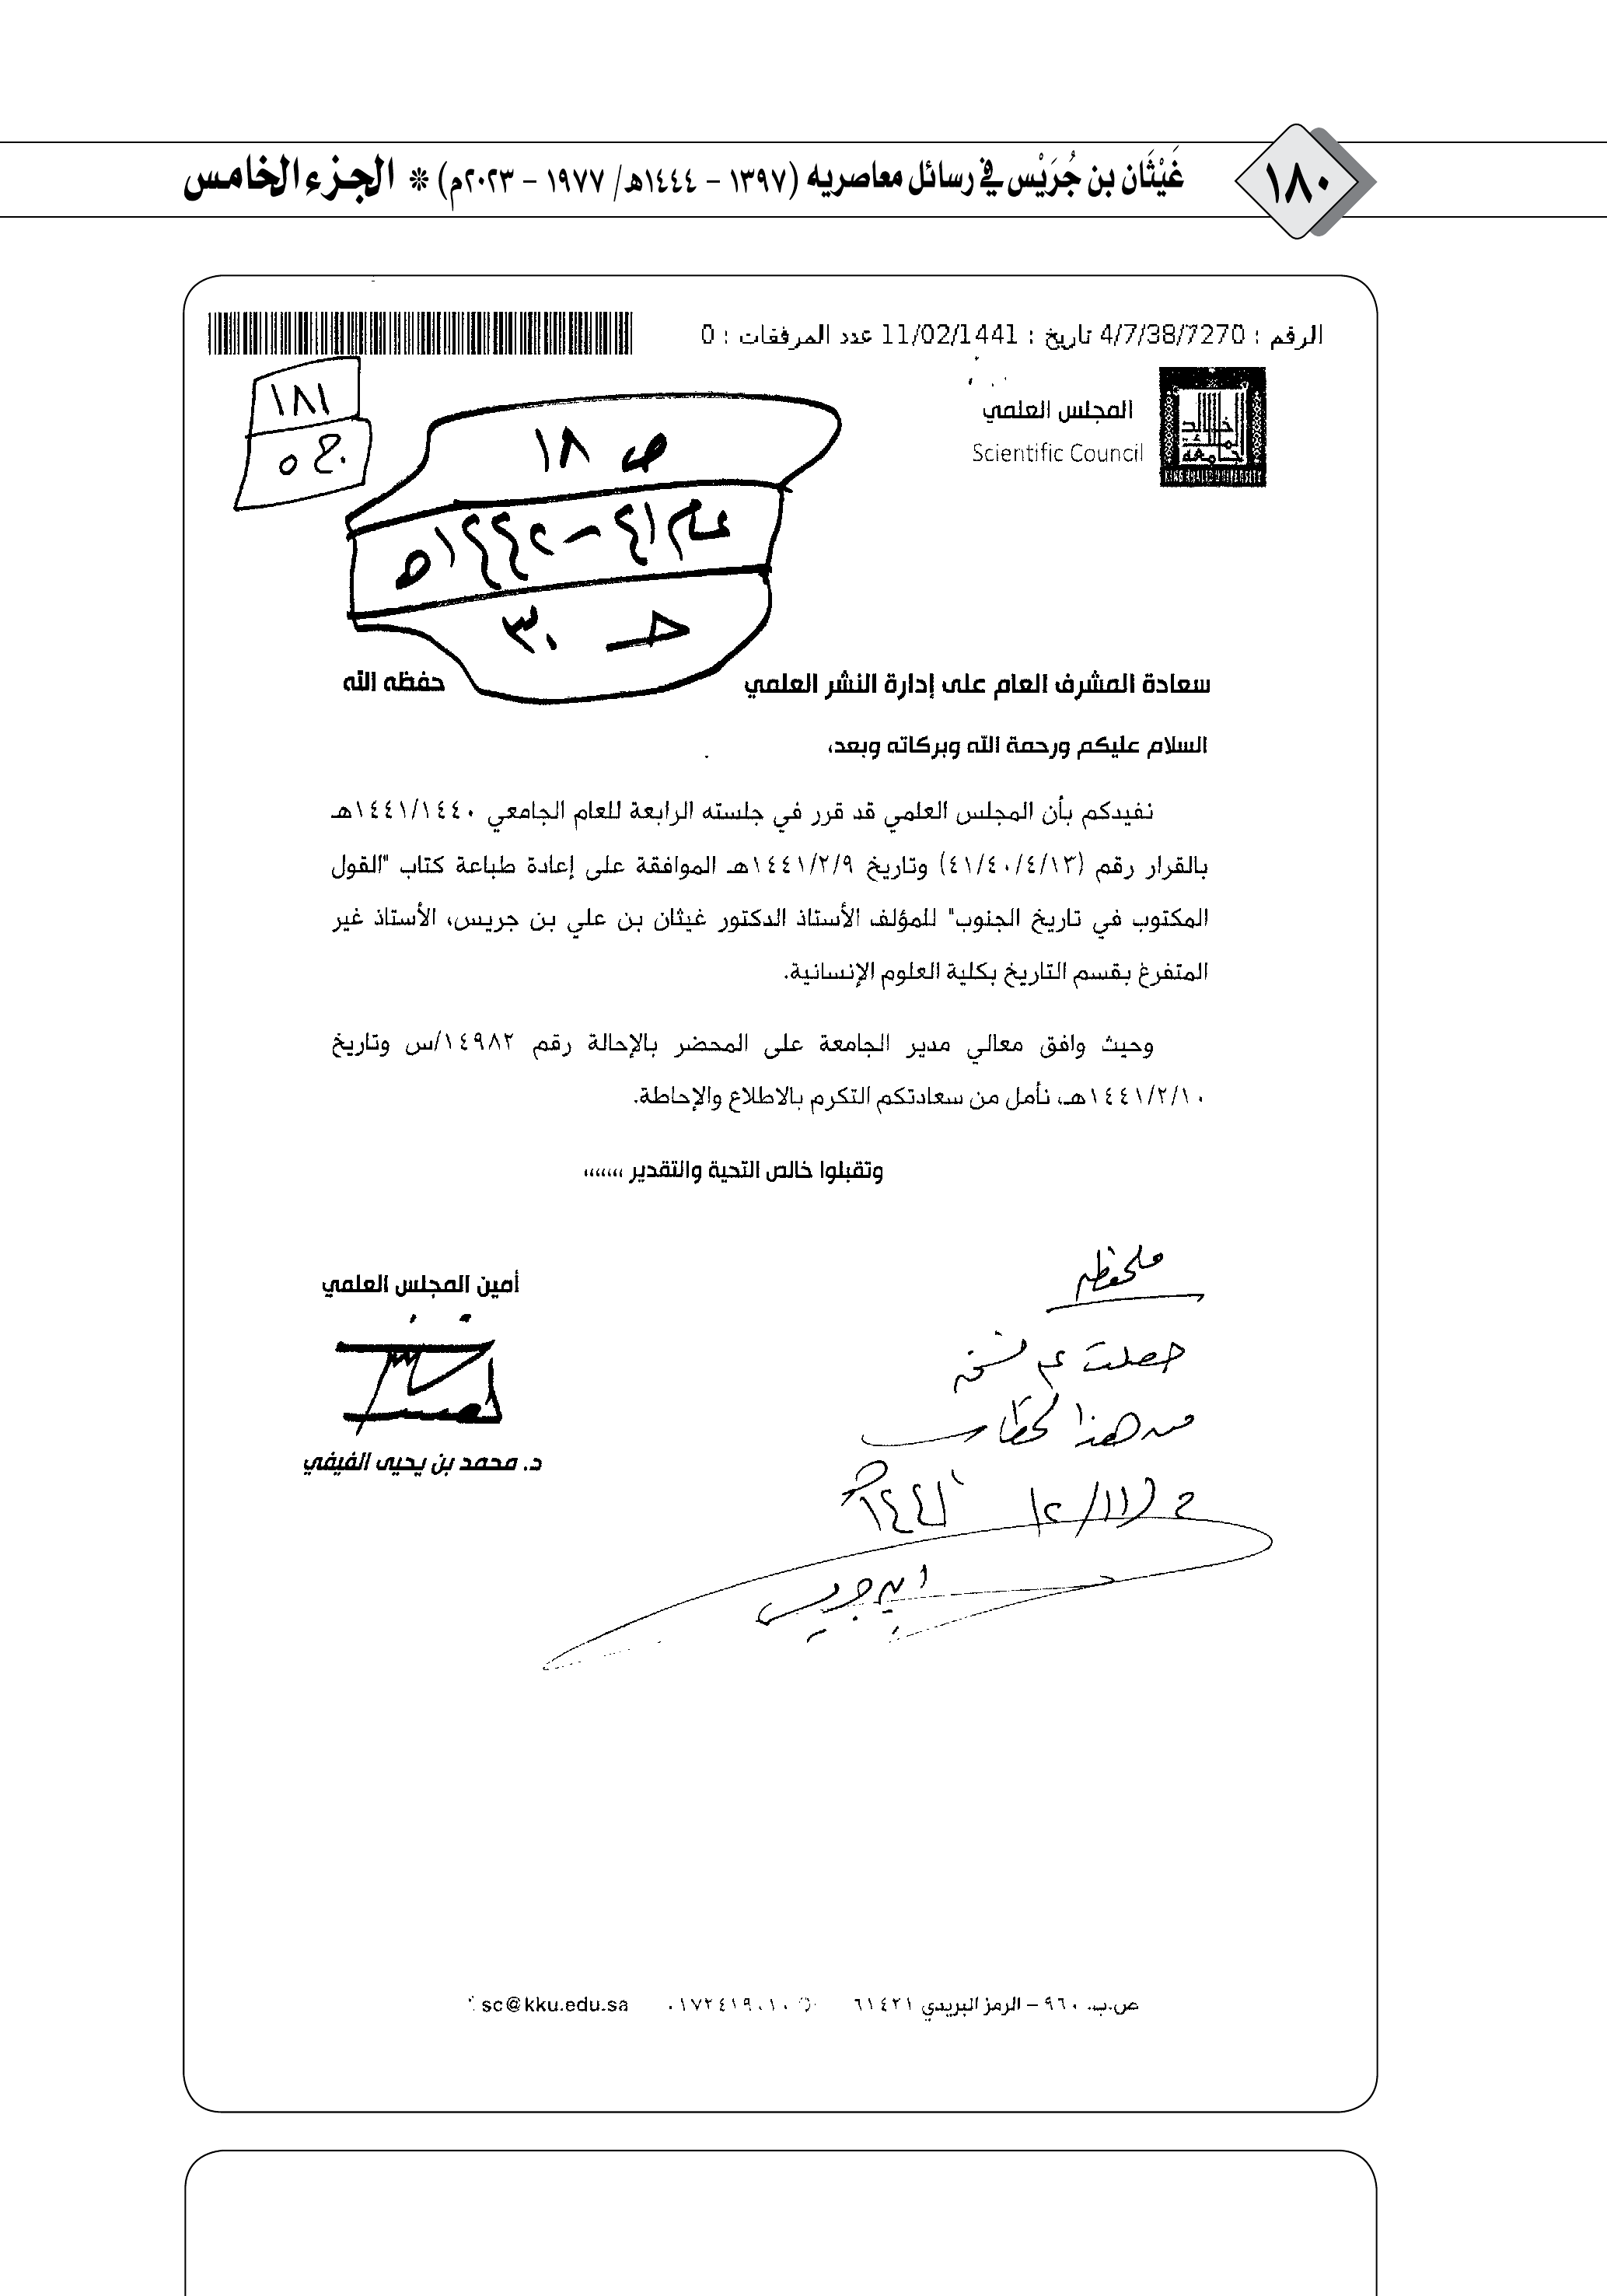 ١٨٠
غَيْثَان بن جُرَيْس في رسائل معاصريه (١٣٩٧ – ١٤٤٤هـ/ ١٩٧٧ – ٢٠٢٣م) * الجزء الخامس
الرقم : 4/7/38/7270 تاريخ : 11/02/1441 عدد المرفقات : 0
المجلس العلمي
Scientific Council
خالد
الملك
جامعة
KING KHALID UNIVERSITY
١٨١
ج ٥
ص ١٨
عام ٤١ – ١٤٤٢هـ
حـ ٣٠
سعادة المشرف العام على إدارة النشر العلمي حفظه الله
السلام عليكم ورحمة الله وبركاته وبعد،
نفيدكم بأن المجلس العلمي قد قرر في جلسته الرابعة للعام الجامعي ١٤٤١/١٤٤٠هـ
بالقرار رقم (٤١/٤٠/٤/١٣) وتاريخ ١٤٤١/٢/٩هـ الموافقة على إعادة طباعة كتاب "القول
المكتوب في تاريخ الجنوب" للمؤلف الأستاذ الدكتور غيثان بن علي بن جريس، الأستاذ غير
المتفرغ بقسم التاريخ بكلية العلوم الإنسانية.
وحيث وافق معالي مدير الجامعة على المحضر بالإحالة رقم ١٤٩٨٢/س وتاريخ
١٤٤١/٢/١٠هـ، نأمل من سعادتكم التكرم بالاطلاع والإحاطة.
وتقبلوا خالص التحية والتقدير ،،،،،،،
أمين المجلس العلمي
د. محمد بن يحيى الفيفي
ملحوظة
حصلت على نسخة
من هذا الخطاب
في ١٢/١١/
ابن جريس
ص.ب. ٩٦٠ – الرمز البريدي ٦١٤٢١ ٠١٧٢٤١٩٠١٠ sc@kku.edu.sa